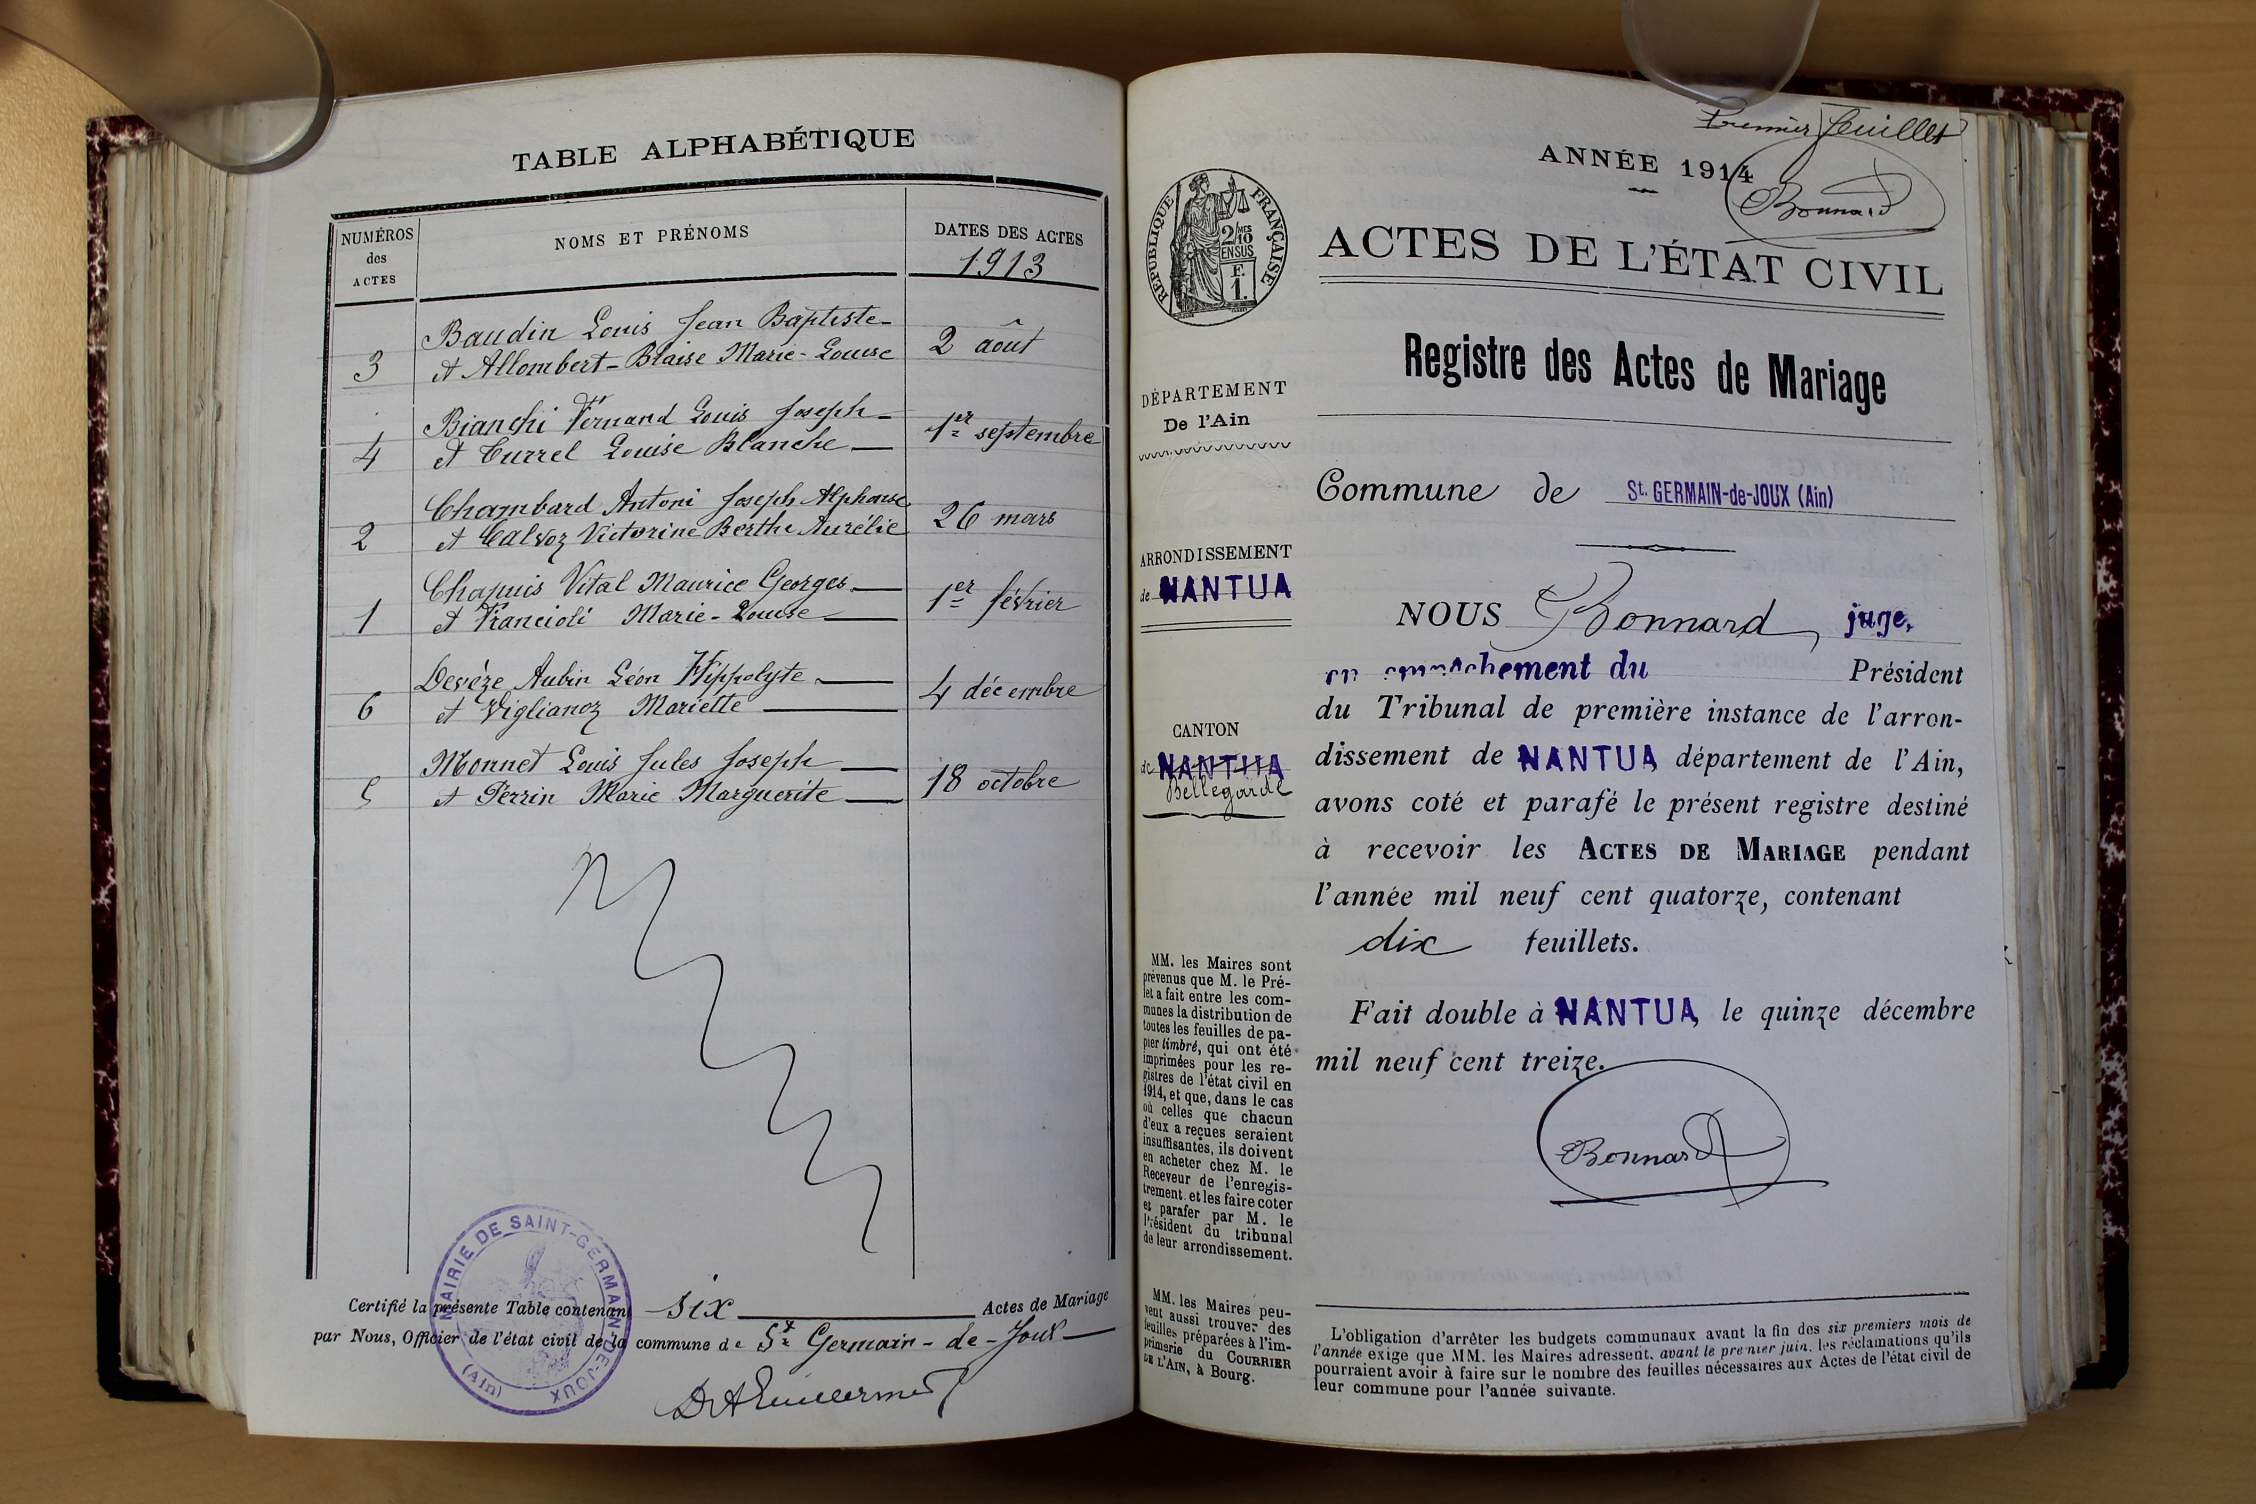 TABLE ALPHABÉTIQUE
NUMÉROS
des
ACTES
NOMS ET PRÉNOMS
DATES DES ACTES
1913
Baudin Louis Jean Baptiste
3 et Allombert-Blaise Marie-Louise 2 aôut
Bianchi Fernand Louis Joseph
4 et Currel Louise Blanche 1er septembre
Chambard Antoni Joseph Alphonse
2 et Calvoz Victorine Berthe Aurélie 26 mars
Chapuis Vital Maurice Georges
1 et Francioli Marie-Louise 1er février
Devèze Aubin Léon Hippolyte
6 et Viglianoz Mariette 4 décembre
Monnet Louis Jules Joseph
5 et Perrin Marie Marguerite 18 octobre
Certifié la présente Table contenant six Actes de Mariage
par Nous, Officier de l'état civil de la commune de St Germain-de-Joux
MAIRIE DE SAINT-GERMAIN-DE-JOUX
(Ain)
Premier feuillet
ANNÉE 1914
Bonnard
RÉPUBLIQUE FRANÇAISE
2/MES
10
EN SUS
F.
1.
ACTES DE L'ÉTAT CIVIL
Registre des Actes de Mariage
DÉPARTEMENT
De l'Ain
Commune de St. GERMAIN-de-JOUX (Ain)
ARRONDISSEMENT
de NANTUA
CANTON
de NANTUA
Bellegarde
NOUS Bonnard, juge,
en empêchement du Président
du Tribunal de première instance de l'arron-
dissement de NANTUA département de l'Ain,
avons coté et parafé le présent registre destiné
à recevoir les ACTES DE MARIAGE pendant
l'année mil neuf cent quatorze, contenant
dix feuillets.
Fait double à NANTUA, le quinze décembre
mil neuf cent treize.
Bonnard
MM. les Maires sont
prévenus que M. le Pré-
fet a fait entre les com-
munes la distribution de
toutes les feuilles de pa-
pier timbré, qui ont été
imprimées pour les re-
gistres de l'état civil en
1914, et que, dans le cas
où celles que chacun
d'eux a reçues seraient
insuffisantes, ils doivent
en acheter chez M. le
Receveur de l'enregis-
trement et les faire coter
et parafer par M. le
Président du tribunal
de leur arrondissement.
MM. les Maires peu-
vent aussi trouver des
feuilles préparées à l'im-
primerie du COURRIER
DE L'AIN, à Bourg.
L'obligation d'arrêter les budgets communaux avant la fin des six premiers mois de
l'année exige que MM. les Maires adressent, avant le premier juin, les réclamations qu'ils
pourraient avoir à faire sur le nombre des feuilles nécessaires aux Actes de l'état civil de
leur commune pour l'année suivante.